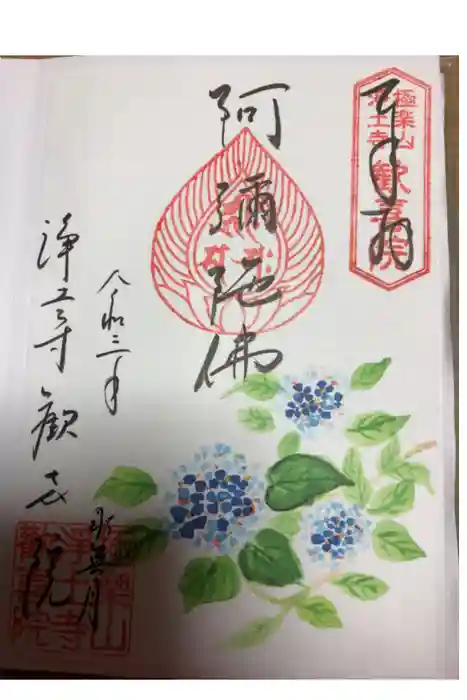 奉拝
極楽山
浄土寺
歓喜院
阿彌陀佛
令和三年
水無月
浄土寺歓喜院
極楽山
浄土寺
歓喜院